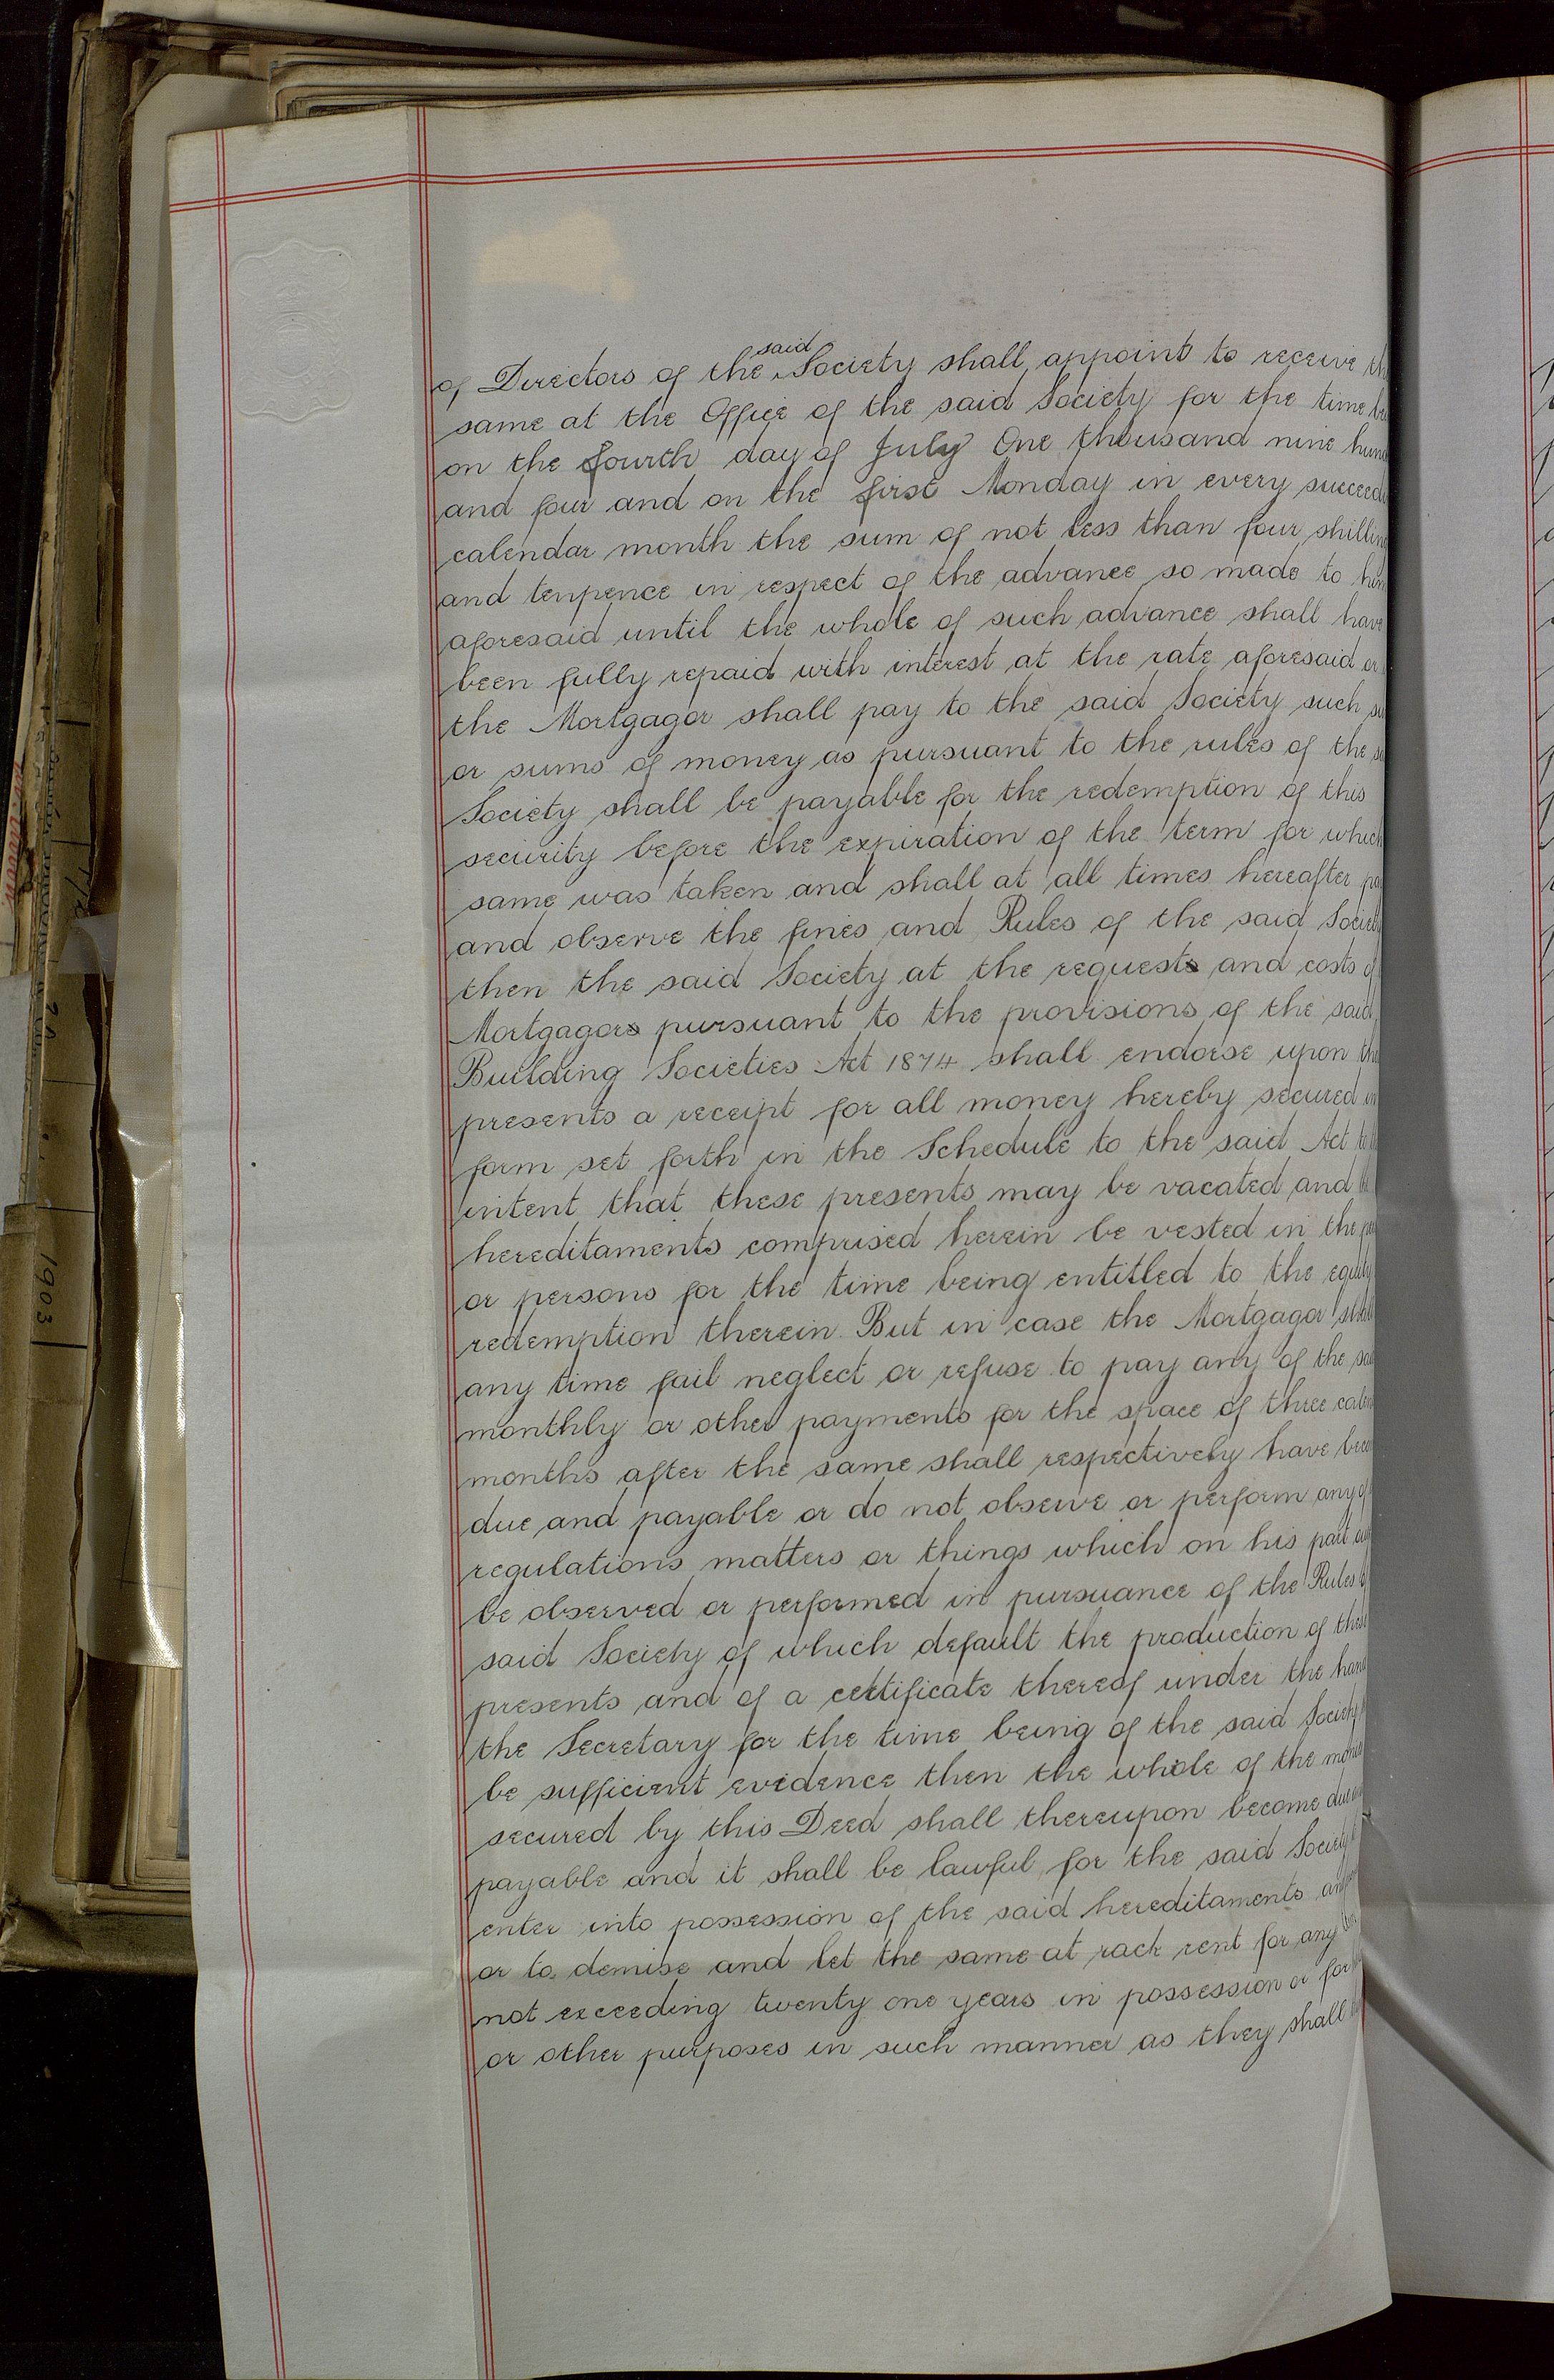 of Directors of the said Society shall appoint to receive
same at the Office of the said Society for the time
on the fourth day of July One thousand nine
and four and on the first Monday in every
calendar month the sum of not less than four
and tenpence in respect of the advance so made to
aforesaid until the whole of such advance shall have
been fully repaid with interest at the rate aforesaid
the Mortgagor shall pay to the said Society such
or sums of money as pursuant to the rules of the
Society shall be payable for the redemption of this
security before the expiration of the term for
same was taken and shall at all times hereafter
and observe the fines and Rules of the said
then the said Society at the requests and costs
Mortgagors pursuant to the provisions of the said
Building Societies Act 1874 shall endorse upon
presents a receipt for all money hereby secured
form set forth in the Schedule to the said Act
intent that these presents may be vacated and
hereditaments comprised herein be vested in the
or persons for the time being entitled to the
redemption therein But in case the Mortgagor
any time fail neglect or refuse to pay any of the
monthly or other payments for the space of three
months after the same shall respectively have
due and payable or do not observe or perform any
regulations matters or things which on his part
be observed or performed in pursuance of the Rules
said Society of which default the production of
presents and of a certificate thereof under the
the Secretary for the time being of the said Society
be sufficient evidence then the whole of the
secured by this Deed shall thereupon become
payable and it shall be lawful for the said
enter into possession of the said hereditaments
or to demise and let the same at rack rent for any
not exceeding twenty one years in possession or for
or other purposes in such manner as they shall
1903